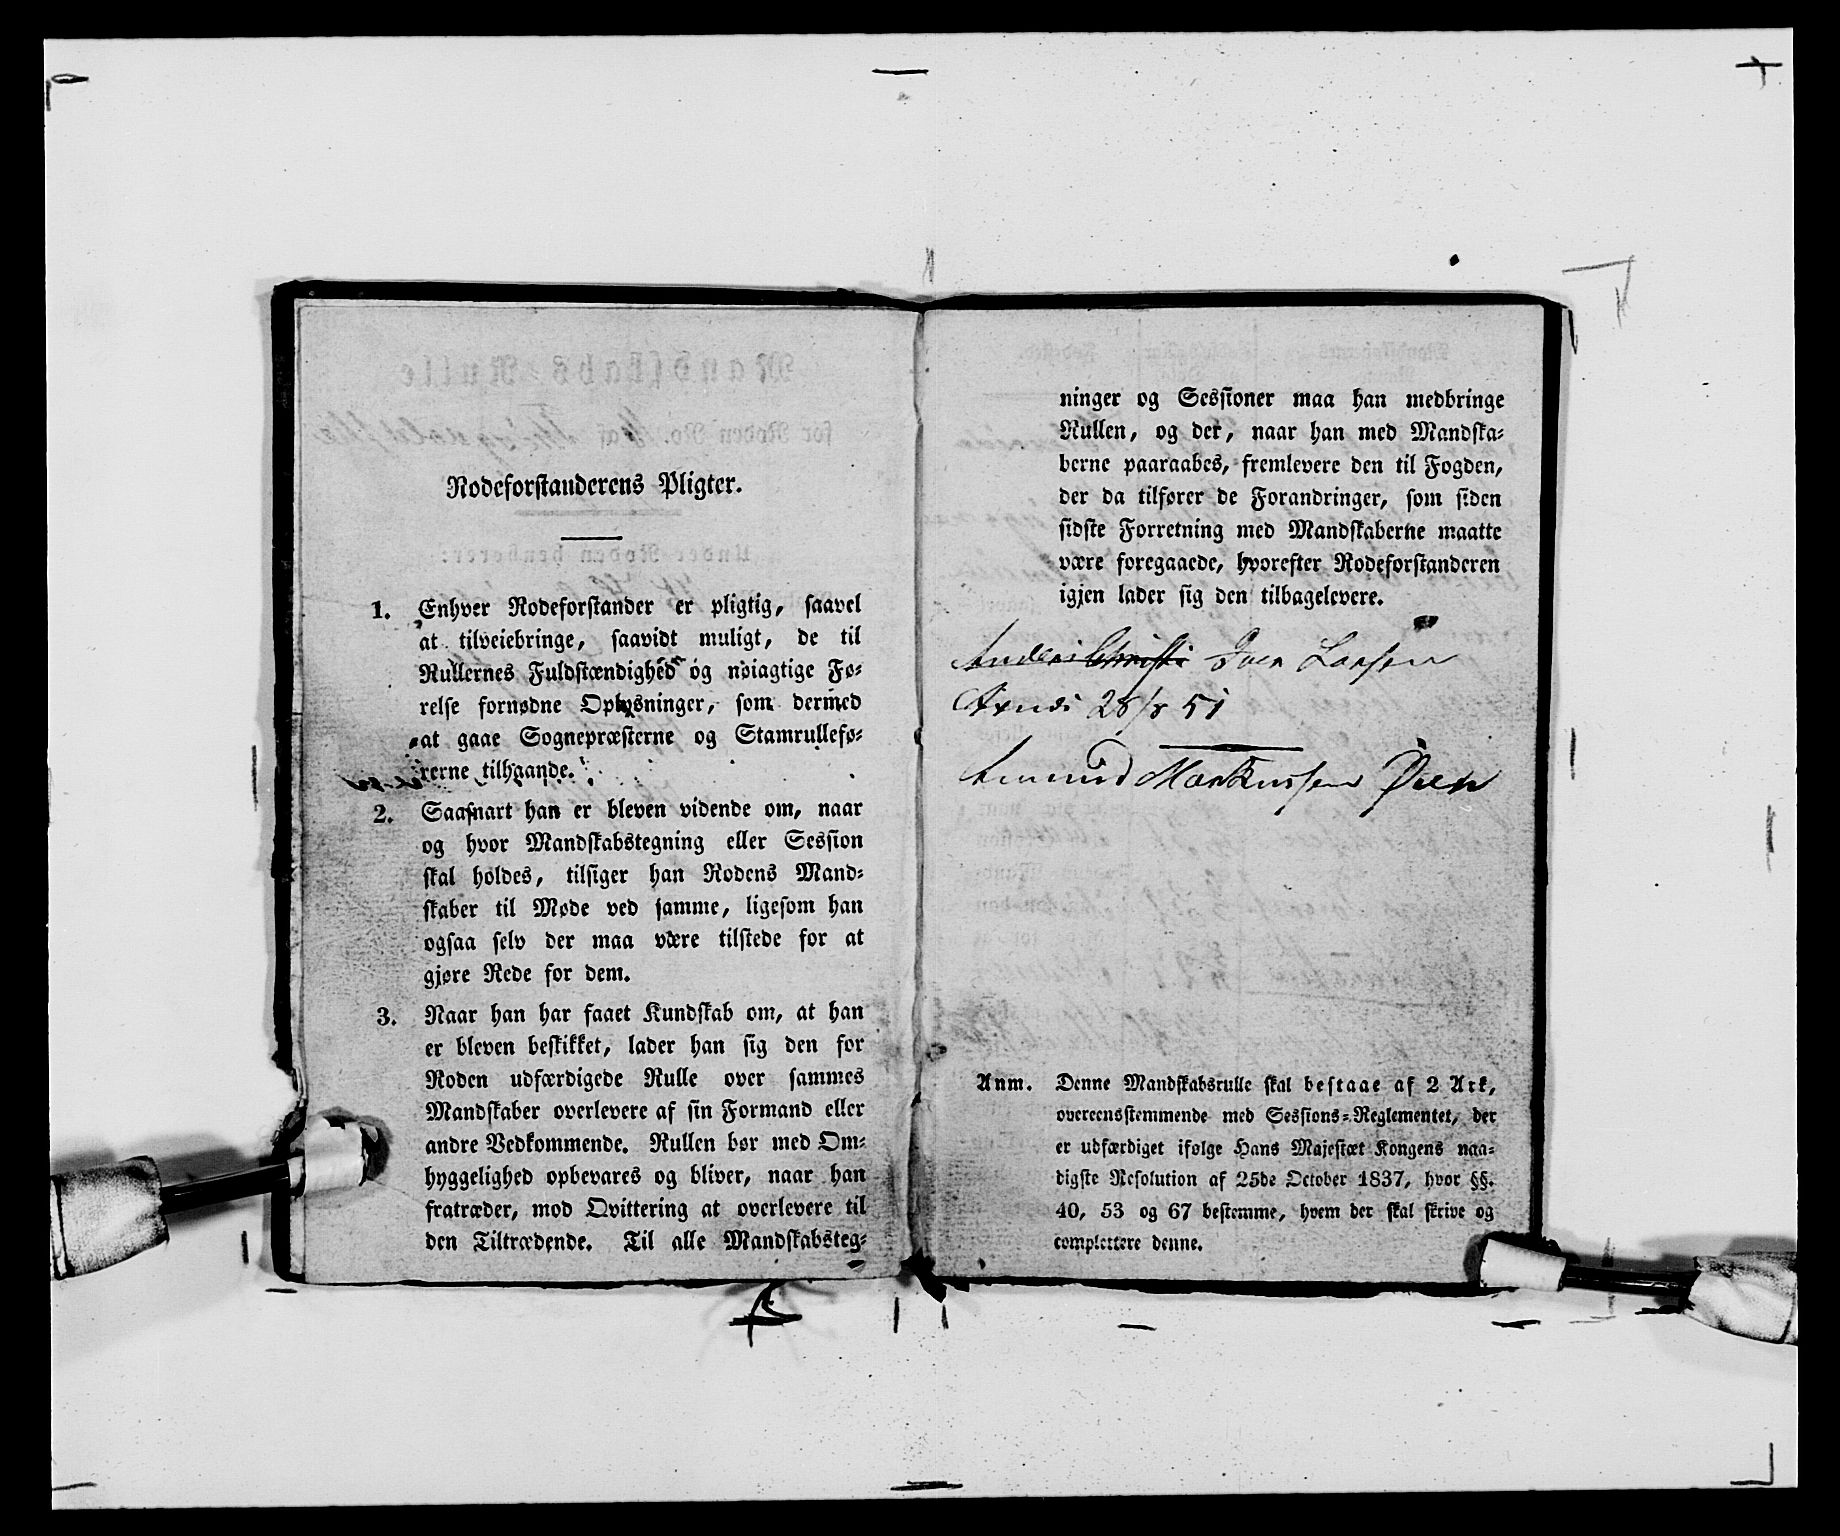 Rodeforstanderens Pligter.
1. Enhver Rodeforstander er pligtig, saavel
at tilveiebringe, saavidt muligt, de til
Rullernes Fuldstændighed og nøiagtige Fø-
relse fornødne Oplysninger, som dermed
at gaae Sognepræsterne og Stamrullefø-
rerne tilhaande.
2. Saasnart han er bleven vidende om, naar
og hvor Mandskabstegning eller Session
skal holdes, tilsiger han Rodens Mand-
skaber til Møde ved samme, ligesom han
ogsaa selv der maa være tilstede for at
gjøre Rede for dem.
3. Naar han har faaet Kundskab om, at han
er bleven beskikket, lader han sig den for
Roden udfærdigede Rulle over sammes
Mandskaber overlevere af sin Formand eller
andre Vedkommende. Rullen bør med Om-
hyggelighed opbevares og bliver, naar han
fratræder, mod Qvittering at overlevere til
den Tiltrædende. Til alle Mandskabsteg-
ninger og Sessioner maa han medbringe
Rullen, og der, naar han med Mandska-
berne paaraabes, fremlevere den til Fogden,
der da tilfører de Forandringer, som siden
sidste Forretning med Mandskaberne maatte
være foregaaede, hvorefter Rodeforstanderen
igjen lader sig den tilbagelevere.
Iver Larsen
28/8 51
Amund Markussen
Anm. Denne Mandskabsrulle skal bestaae af 2 Ark,
overeensstemmende med Sessions-Reglementet, der
er udfærdiget ifølge Hans Majestæt Kongens naa-
digste Resolution af 25de October 1837, hvor §§.
40, 53 og 67 bestemme, hvem der skal skrive og
complettere denne.